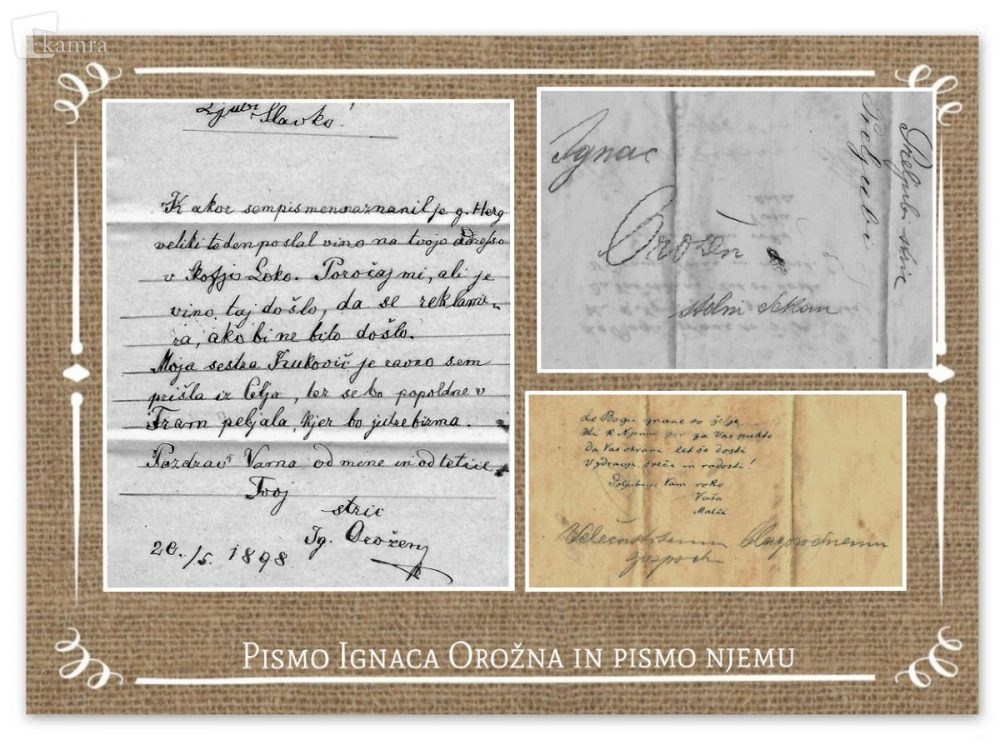 kamra
Ljubi Slavko!
Kakor sem pismeno naznanil je g. Herg
veliki teden poslal vino na tvojo adreso
v Škofjo Loko. Poročaj mi, ali je
vino taj došlo, da se reklami-
ra, ako bi ne bilo došlo.
Moja sestra Krukovič je ravno sem
prišla iz Celja, ter se bo popoldne v
Fram peljala, kjer bo jutre birma.
Pozdrav Vama od mene in od tetice
Tvoj
stric
Ig. Orožen
20./5. 1898
Ignac
Orožen
Preljubi stric
Preljubi
Bogu znane so želje
k Njemu gor za Vas puhte
Da Vas ohrani let še dosti
V zdravju, sreči in radosti!
Poljubuje Vam roko
Vaša
Malči
Velečastitemu Blagorodnemu
gospodu
PISMO IGNACA OROŽNA IN PISMO NJEMU